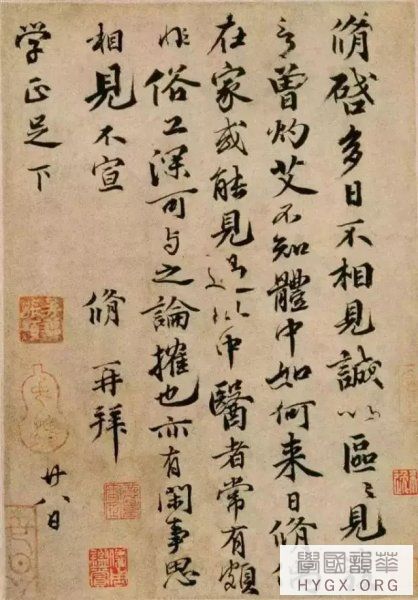 脩啓多日不相見誠以區區見
言曾灼艾不知體中如何来日脩偶
在家或能見過此中醫者常有頗
非俗工深可与之論攉也亦有閑事思
相見不宣 脩再拜
学正足下
廿八日
學國韻華
HYGX.ORG